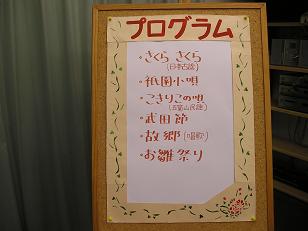 プログラム
・さくら さくら
(日本古謡)
・祇園小唄
・こきりこの唄
(五箇山民謡)
・武田節
・故郷(唱歌)
・お雛祭り